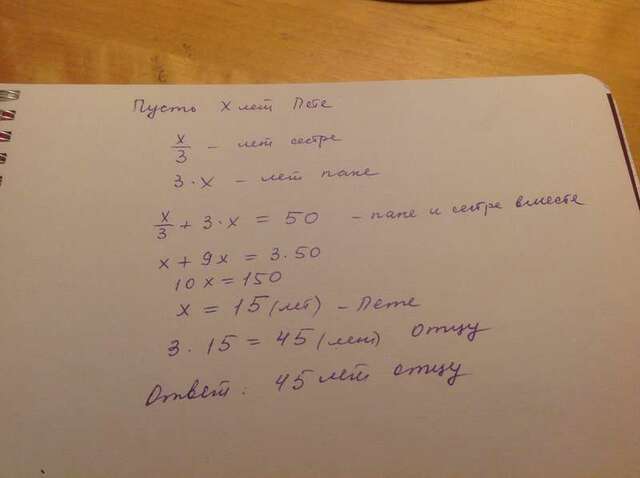 Пусть x лет Пете
x/3 - лет сестре
3·x - лет папе
x/3 + 3·x = 50 - папе и сестре вместе
x + 9x = 3·50
10x = 150
x = 15 (лет) - Пете
3 · 15 = 45 (лет) отцу
Ответ: 45 лет отцу